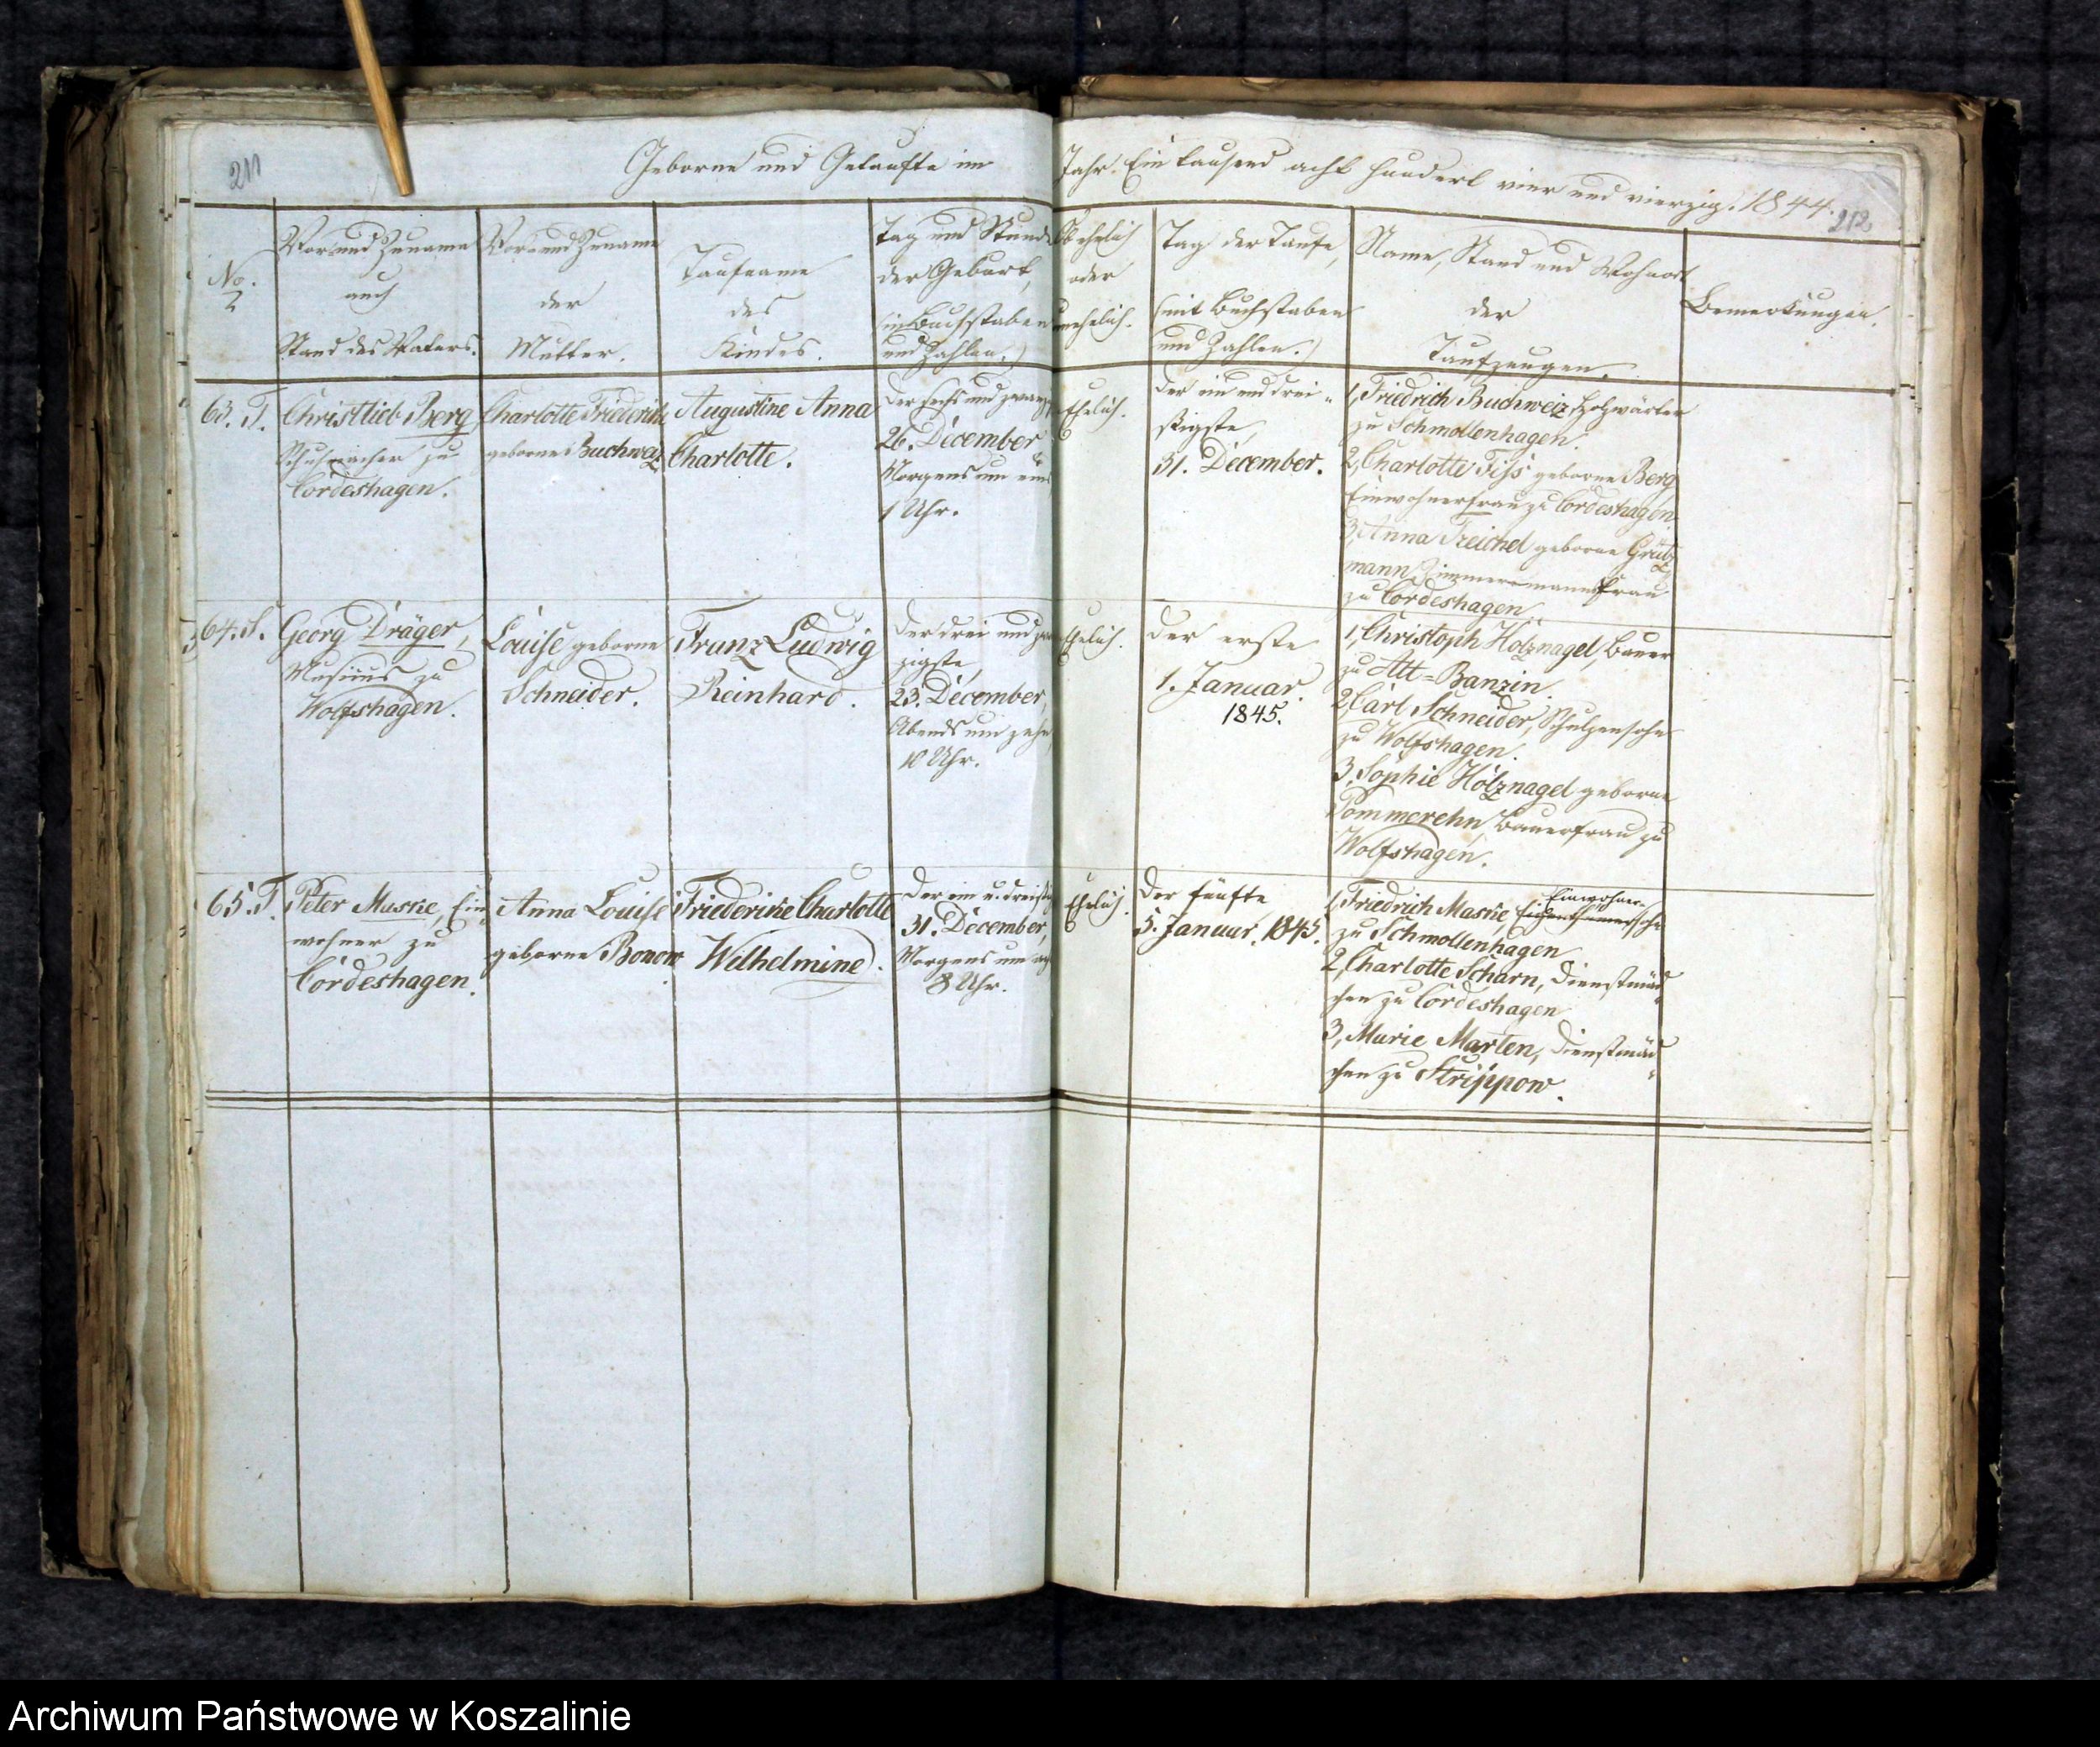 211
Geborne und Getaufte im Jahr Ein tausend acht hundert vier und vierzig. 1844.
212
No.
Vor- und Zuname
auch
Stand des Vaters.
Vor- und Zuname
der
Mutter.
Taufname
des
Kindes.
Tag und Stunde
der Geburt,
(in Buchstaben
und Zahlen.)
Ob ehelich
oder
unehelich.
Tag der Taufe,
(mit Buchstaben
und Zahlen.)
Name, Stand und Wohnort
der
Taufzeugen.
Bemerkungen.
63. T.
Christlieb Berg
Schuhmacher zu
Cordeshagen.
Charlotte Friederike
geborne Buchweiz
Augustine Anna
Charlotte.
Der sechs und zwanzigste
26. December
Morgens um eins
1 Uhr.
Ehelich.
Der ein und drei-
ßigste,
31. December.
1, Friedrich Buchweiz, Holzwärter
zu Schmollenhagen.
2, Charlotte Fiss geborne Berg
Einwohnerfrau zu Cordeshagen
3, Anna Treichel geborne Grütz
mann, Zimmermannsfrau
zu Cordeshagen
64. S.
Georg Dräger,
Musicus zu
Wolfshagen.
Louise geborne
Schneider.
Franz Ludwig
Reinhard.
Der drei und zwan
zigste,
23. December,
Abends um zehn,
10 Uhr.
Ehelich.
Der erste
1. Januar.
1845.
1, Christoph Holznagel, Bauer
zu Alt-Banzin.
2, Carl Schneider, Schulzensohn
zu Wolfshagen.
3, Sophie Holznagel geborne
Pommerehn, Bauerfrau zu
Wolfshagen.
65. T.
Peter Maske, Ein-
wohner zu
Cordeshagen.
Anna Louise
geborne Bonow.
Friederike Charlotte
Wilhelmine.
Der ein u. dreißig
31. December,
Morgens um acht
8 Uhr.
Ehelich.
Der fünfte
5. Januar. 1845.
1, Friedrich Maske, Eigenthümersohn
Einwohner-
zu Schmollenhagen
2, Charlotte Scharn, Dienstmäd-
chen zu Cordeshagen
3, Marie Marten, Dienstmäd-
chen zu Strippow.
Archiwum Państwowe w Koszalinie